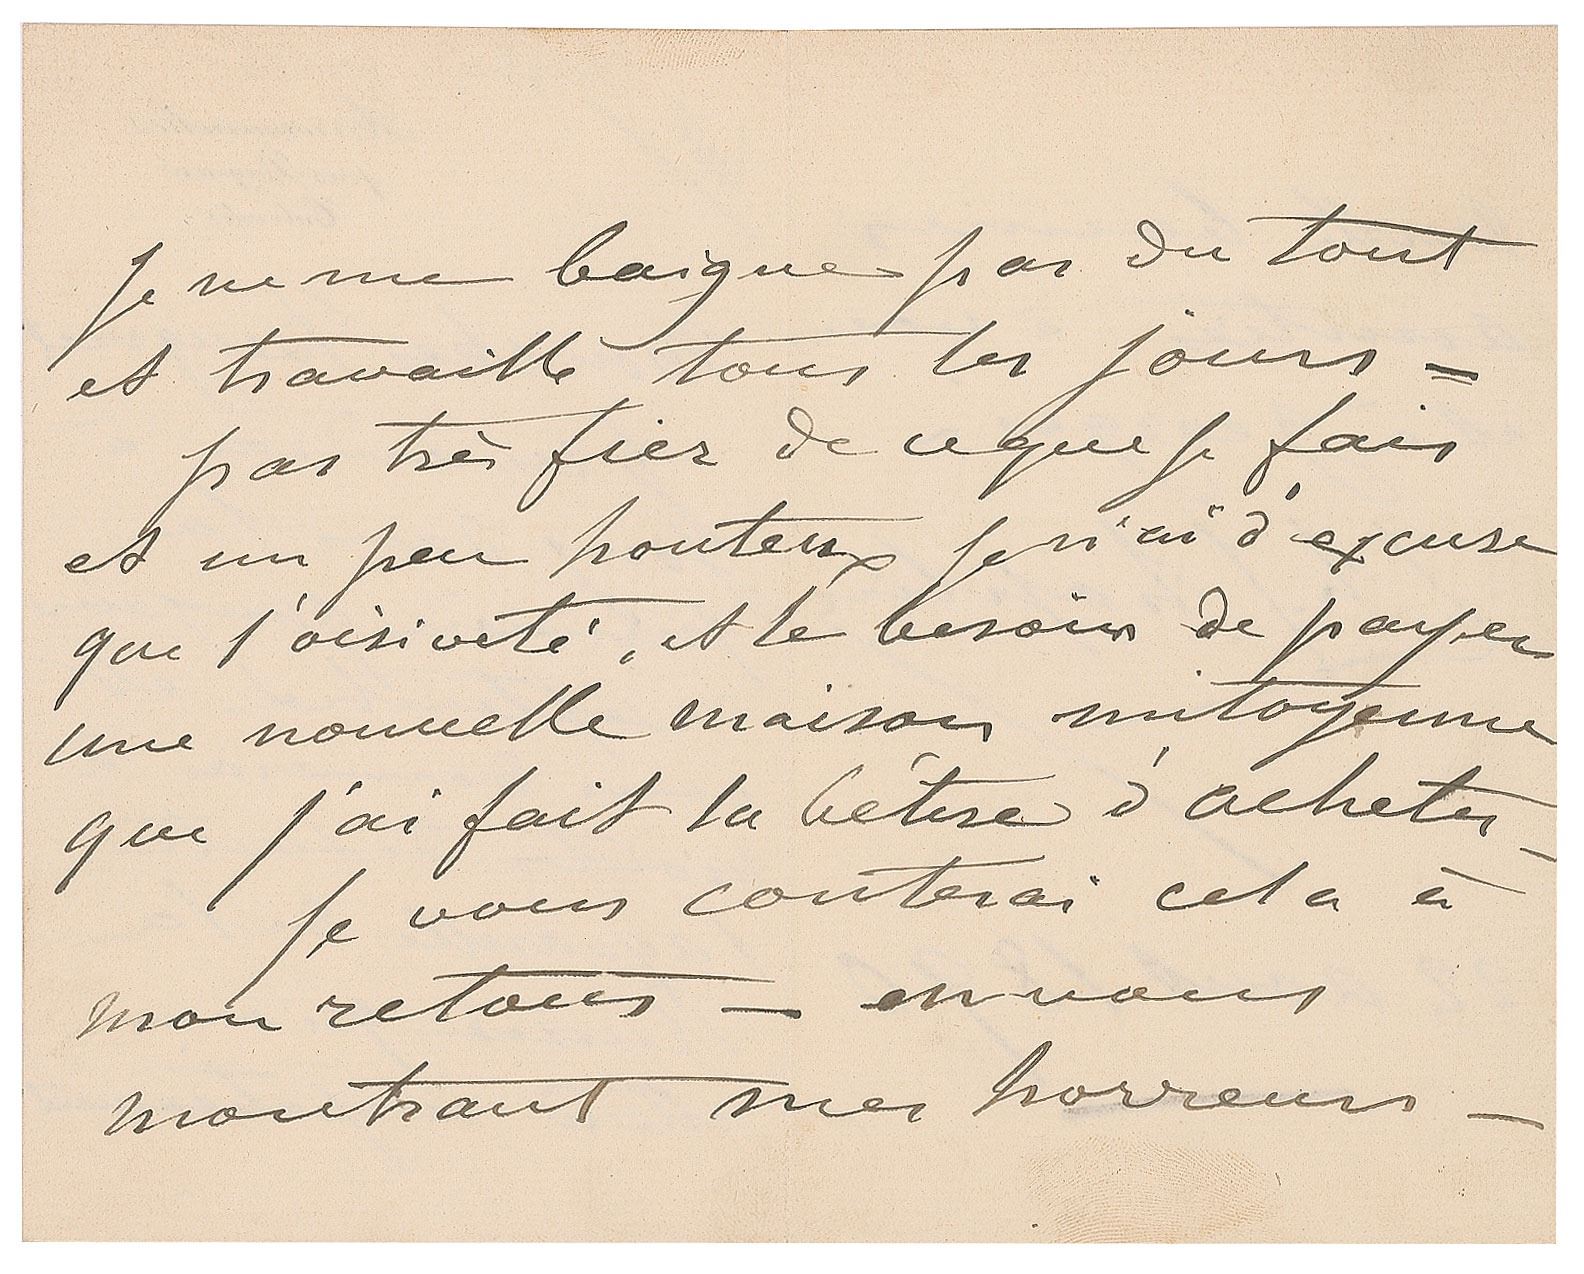 Je ne me baigne pas du tout
et travaille tous les jours –
pas très fier de ce que je fais
et un peu honteux je n'ai d'excuse
que l'oisiveté, et le besoin de payer
une nouvelle maison mitoyenne
que j'ai fait la bêtise d'acheter –
Je vous conterai cela à
mon retour – en vous
montrant mes horreurs –